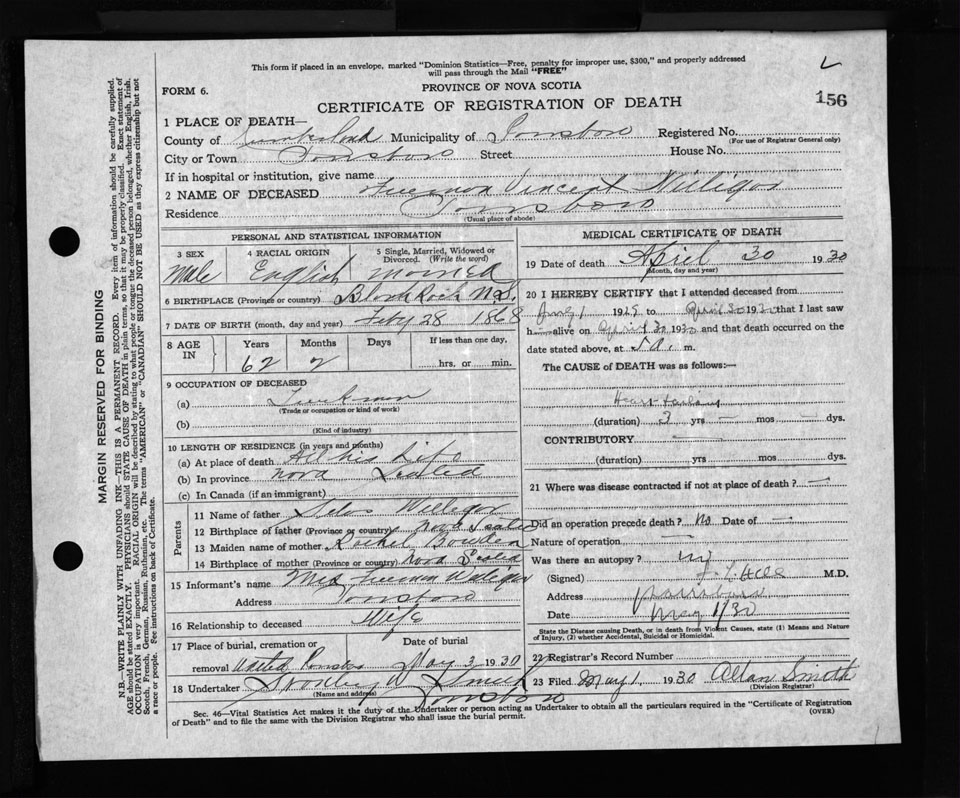 This form if placed in an envelope, marked "Dominion Statistics—Free, penalty for improper use, $300," and properly addressed
will pass through the Mail "FREE"
FORM 6.
PROVINCE OF NOVA SCOTIA
156
CERTIFICATE OF REGISTRATION OF DEATH
1 PLACE OF DEATH—
County of Cumberland Municipality of Parrsboro Registered No.
(For use of Registrar General only)
City or Town Parrsboro Street House No.
If in hospital or institution, give name
2 NAME OF DECEASED Freeman Vincent
Residence Parrsboro
(Usual place of abode)
PERSONAL AND STATISTICAL INFORMATION
3 SEX 4 RACIAL ORIGIN 5 Single, Married, Widowed or Divorced. (Write the word)
Male English Married
6 BIRTHPLACE (Province or country) Black Rock N.S.
7 DATE OF BIRTH (month, day and year) Feby 28 1868
8 AGE IN Years Months Days If less than one day,
62 2 hrs. or min.
9 OCCUPATION OF DECEASED
(a) Truckman
(Trade or occupation or kind of work)
(b)
(Kind of industry)
10 LENGTH OF RESIDENCE (in years and months)
(a) At place of death All his Life
(b) In province Nova Scotia
(c) In Canada (if an immigrant)
Parents
11 Name of father
12 Birthplace of father (Province or country) Nova Scotia
13 Maiden name of mother Rachel
14 Birthplace of mother (Province or country) Nova Scotia
15 Informant's name Mrs Freeman
Address Parrsboro
16 Relationship to deceased Wife
17 Place of burial, cremation or removal Date of burial
May 3 1930
18 Undertaker Smith
(Name and address) Parrsboro
MEDICAL CERTIFICATE OF DEATH
19 Date of death April 30 1930
(Month, day and year)
20 I HEREBY CERTIFY that I attended deceased from
1929 to April 30 1930 that I last saw
h alive on April 30 1930 and that death occurred on
date stated above, at 5 a. m.
The CAUSE of DEATH was as follows:—
Heart
(duration) 3 yrs — mos — dys.
CONTRIBUTORY —
(duration) yrs — mos — dys.
21 Where was disease contracted if not at place of death? —
Did an operation precede death? No Date of —
Nature of operation —
Was there an autopsy?
(Signed) M.D.
Address Parrsboro
Date May 1/30
State the Disease causing Death, or in death from Violent Causes, state (1) Means and Nature
of Injury, (2) whether Accidental, Suicidal or Homicidal.
22 Registrar's Record Number
23 Filed May 1 1930 Allan Smith
(Division Registrar)
Sec. 46—Vital Statistics Act makes it the duty of the Undertaker or person acting as Undertaker to obtain all the particulars required in the "Certificate of Registration
of Death" and to file the same with the Division Registrar who shall issue the burial permit.
(OVER)
MARGIN RESERVED FOR BINDING
N.B.—WRITE PLAINLY WITH UNFADING INK—THIS IS A PERMANENT RECORD. Every item of information should be carefully supplied.
AGE should be stated EXACTLY. PHYSICIANS should STATE CAUSE OF DEATH in plain terms, so that it may be properly classified. Exact statement of
OCCUPATION is very important. RACIAL ORIGIN will be described by stating to what people or tongue the deceased person belonged, whether English, Irish,
Scotch, French, German, Russian, Ruthenian, etc. The terms "AMERICAN" or "CANADIAN" SHOULD NOT BE USED as they express citizenship but not
a race or people. See instructions on back of Certificate.